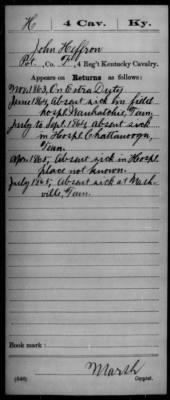 H | 4 Cav. | Ky.
John Heffron
Pvt., Co. F, 4 Reg't Kentucky Cavalry.
Appears on Returns as follows:
Nov. 1863, On Extra Duty
June 1864, Absent sick in field
hospl. Wauhatchie, Tenn.
July to Sept. 1864, absent sick
in Hospl. Chattanooga,
Tenn.
Apr. 1865, Absent sick in Hospl.
place not known.
July 1865, Absent sick at Nash-
ville, Tenn.
Book mark:
Marsh
(546) Copyist.